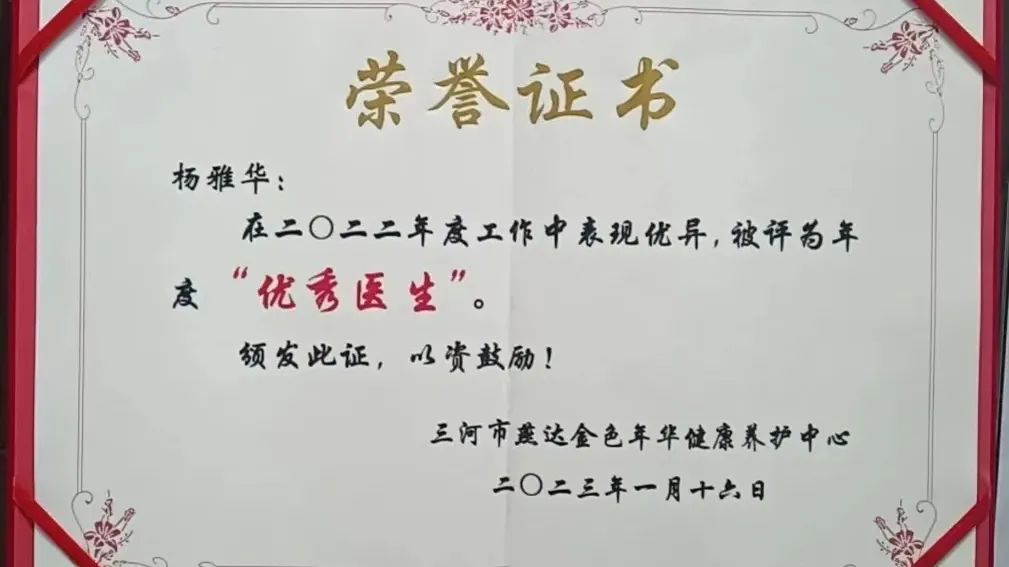 荣誉证书
杨雅华：
在二〇二二年度工作中表现优异，被评为年
度“优秀医生”。
颁发此证，以资鼓励！
三河市燕达金色年华健康养护中心
二〇二三年一月十六日